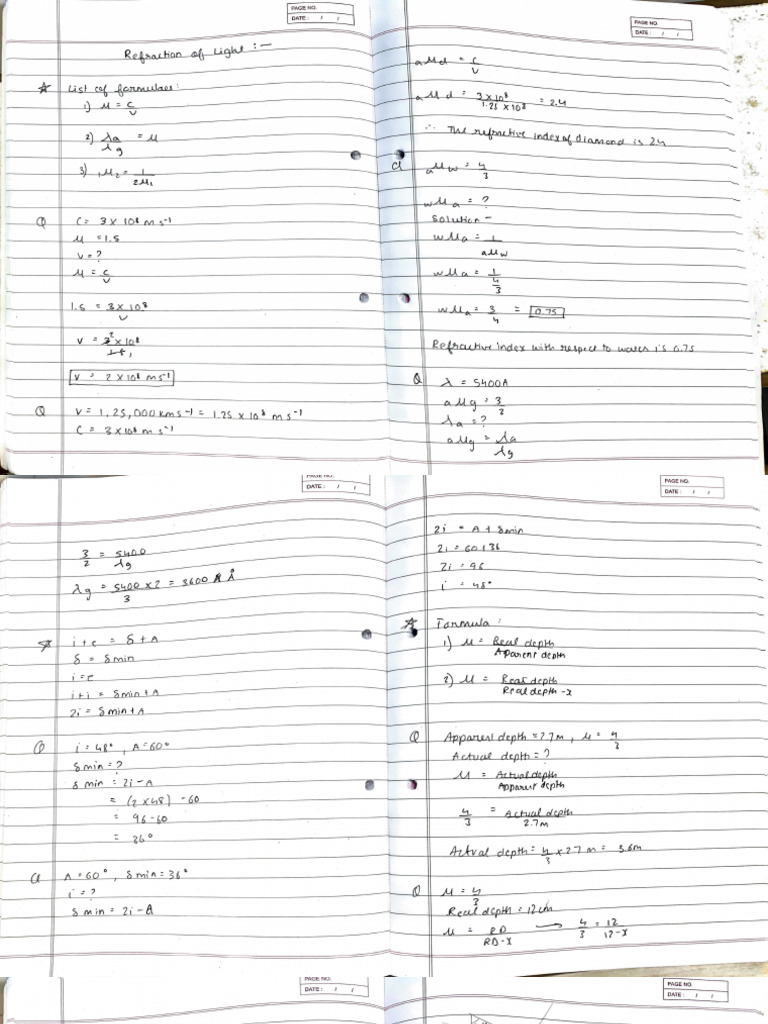 PAGE NO.
DATE : / /
Refraction of Light :-
☆ List of formulaes:
1) μ = c/v
2) λa/λg = μ
3) 1μ2 = 1/2μ1
Q C = 3 × 10⁸ m s⁻¹
μ = 1.5
v = ?
μ = c/v
1.5 = 3 × 10⁸/v
v = 3² × 10⁸/1.5 1
v = 2 × 10⁸ m s⁻¹
Q v = 1,25,000 km s⁻¹ = 1.25 × 10⁸ m s⁻¹
C = 3 × 10⁸ m s⁻¹
PAGE NO.
DATE : / /
aμd = c/v
aμd = 3 × 10⁸/1.25 × 10⁸ = 2.4
∴ The refractive index of diamond is 2.4
Q aμw = 4/3
wμa = ?
Solution -
wμa = 1/aμw
wμa = 1/4/3
wμa = 3/4 = 0.75
Refractive index with respect to water is 0.75
Q λ = 5400A
aμg = 3/2
λa = ?
aμg = λa/λg
DATE : / /
3/2 = 5400/λg
λg = 5400 × 2/3 = 3600 Å
☆ i + e = δ + A
δ = δ min
i = e
i + i = δ min + A
2i = δ min + A
Q i = 48° , A = 60°
δ min = ?
δ min = 2i - A
= (2 × 48) - 60
= 96 - 60
= 36°
Q A = 60° , δ min = 36°
i = ?
δ min = 2i - A
PAGE NO.
DATE : / /
2i = A + δ min
2i = 60 + 36
2i = 96
i = 48°
☆ Formula :
1) μ = Real depth/Apparent depth
2) μ = Real depth/Real depth - x
Q Apparent depth = 2.7 m, μ = 4/3
Actual depth = ?
μ = Actual depth/Apparent depth
4/3 = Actual depth/2.7 m
Actual depth = 4/3 × 2.7 m = 3.6 m
Q μ = 4/3
Real depth = 12 cm
μ = RD/RD - x → 4/3 = 12/12 - x
PAGE NO.
DATE : / /
PAGE NO.
DATE : / /